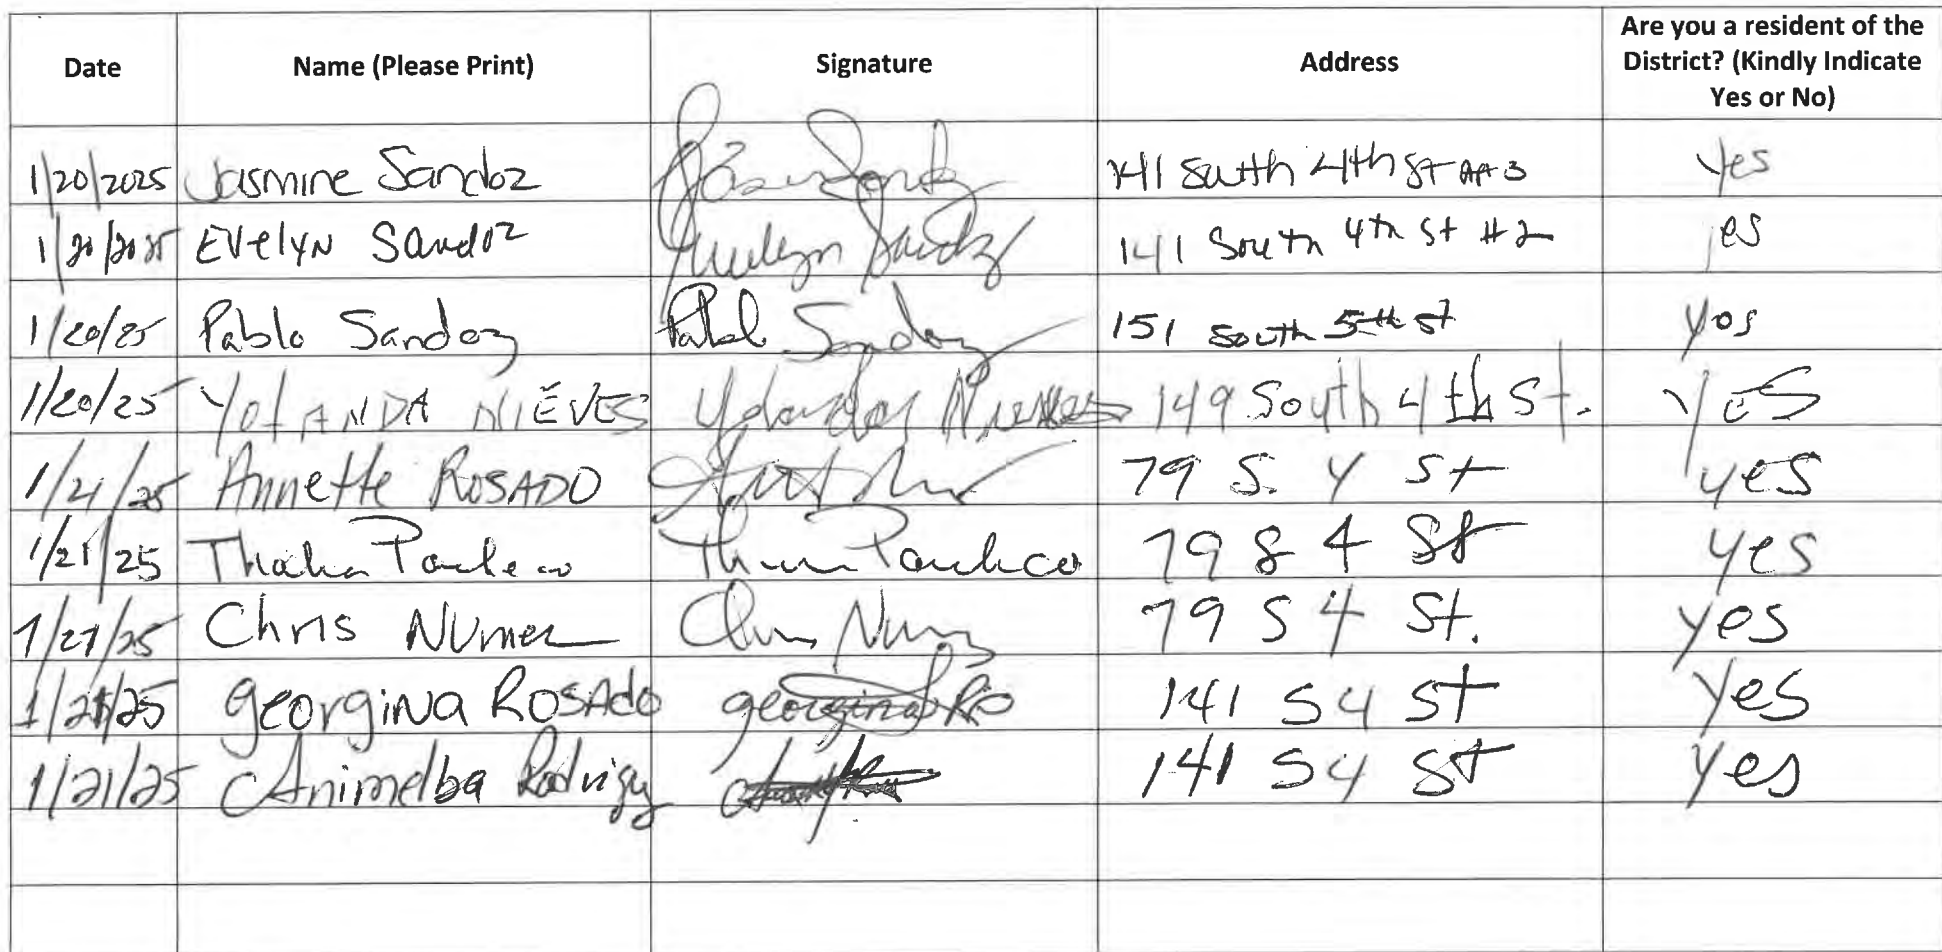 Date Name (Please Print) Signature Address Are you a resident of the District? (Kindly Indicate Yes or No)
1/20/2025 Jasmine Sandoz 141 South 4th St Apt 3 yes
1/20/2025 Evelyn Sandoz Evelyn Sandoz 141 South 4th St #2 yes
1/20/25 Pablo Sandoz Pablo Sandoz 151 South 5th St yes
1/20/25 YOLANDA NIEVES Yolanda Nieves 149 South 4th St. yes
1/21/25 Annette ROSADO 79 S. 4 St yes
1/21/25 Pacheco 79 S 4 St yes
1/21/25 Chris Chris 79 S 4 St. yes
1/21/25 georgina ROSAdo georgina 141 S 4 St yes
1/21/25 Animelba 141 S 4 St yes